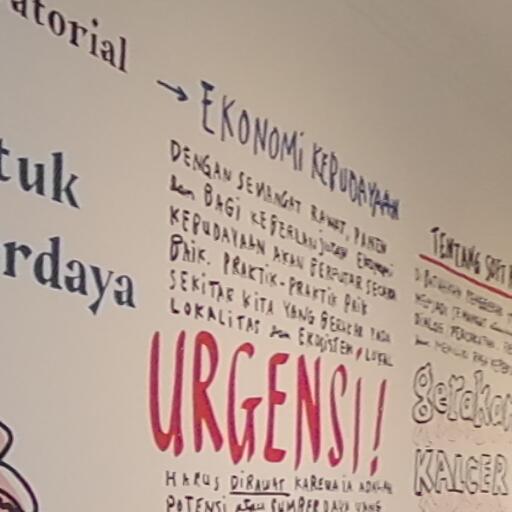 atorial
tuk
rdaya
→ EKONOMI KEBUDAYAAN
DENGAN SEMANGAT RAWAT, PANEN
dan BAGI KEBERLANJUTAN EKONOMI
KEBUDAYAAN AKAN BERPUTAR SECARA
BAIK. PRAKTIK-PRAKTIK BAIK
SEKITAR KITA YANG BERAKAR PADA
LOKALITAS dan EKOSISTEM LOKAL
URGENSI!
HARUS DIRAWAT KARENA IA ADALAH
POTENSI atau SUMBER DAYA YANG
TENTANG
gerakan
KALCER